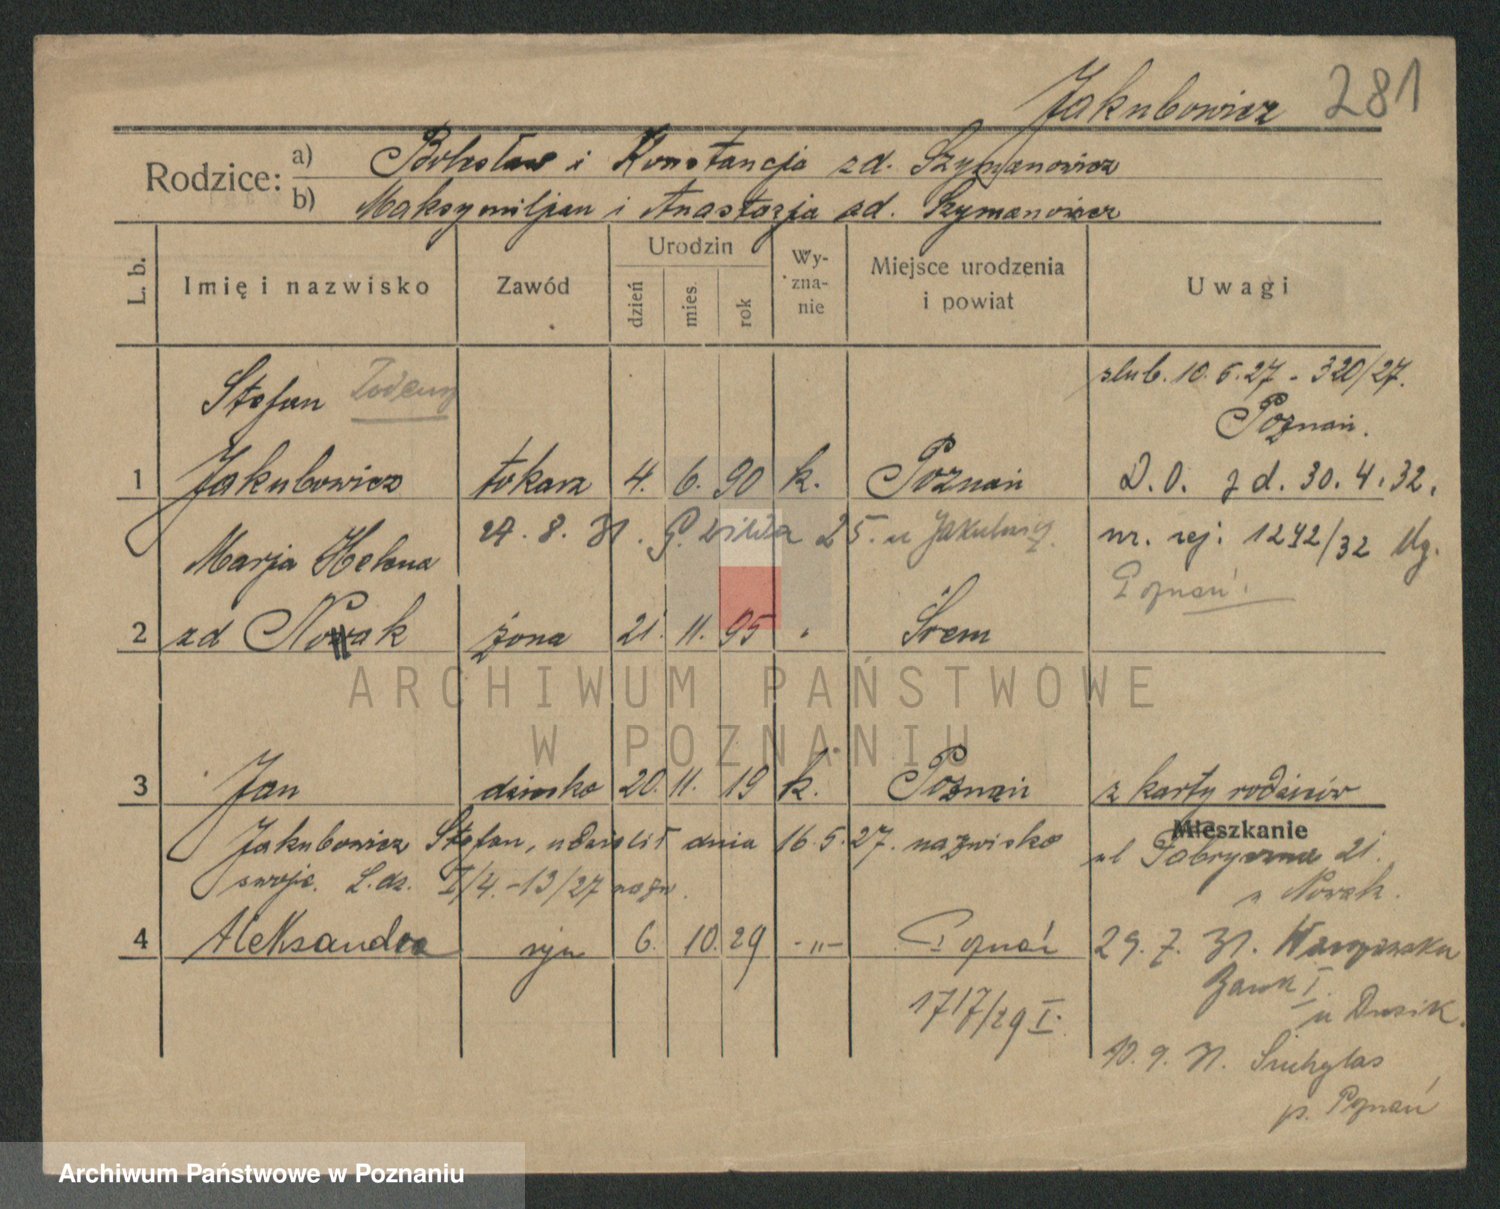 Jakubowicz 281
Rodzice: a) Bolesław i Konstancja zd. Szymanowicz
b) Maksymiljan i Anastazja zd. Szymanowicz
L. b. Imię i nazwisko Zawód Urodzin dzień mies. rok Wyznanie Miejsce urodzenia i powiat Uwagi
Stefan ślub. 10.5.27 - 320/27.
Poznań.
1 Jakubowicz tokarz 4. 6. 90 k. Poznań D.O. z d. 30.4.32.
Marja Helena 27.8.31. G. Wilda 25. u Jakubowicz. nr. rej: 1292/32
Poznań.
2 zd Nowak żona 21. 11. 95 " Śrem
ARCHIWUM PAŃSTWOWE
W POZNANIU
3 Jan dziecko 20. 11. 19 k. Poznań z karty rodziców
Jakubowicz Stefan, udzielił dnia 16.5.27. nazwisko Mieszkanie
swoje. L.dz. I/4.-13/27 nazw. ul Fabryczna 21.
u Nowak.
4 Aleksandra 6. 10. 29 -"- Poznań 29.7.31.
1717/29 I.
10.9.31. Suchylas
p. Poznań
Archiwum Państwowe w Poznaniu